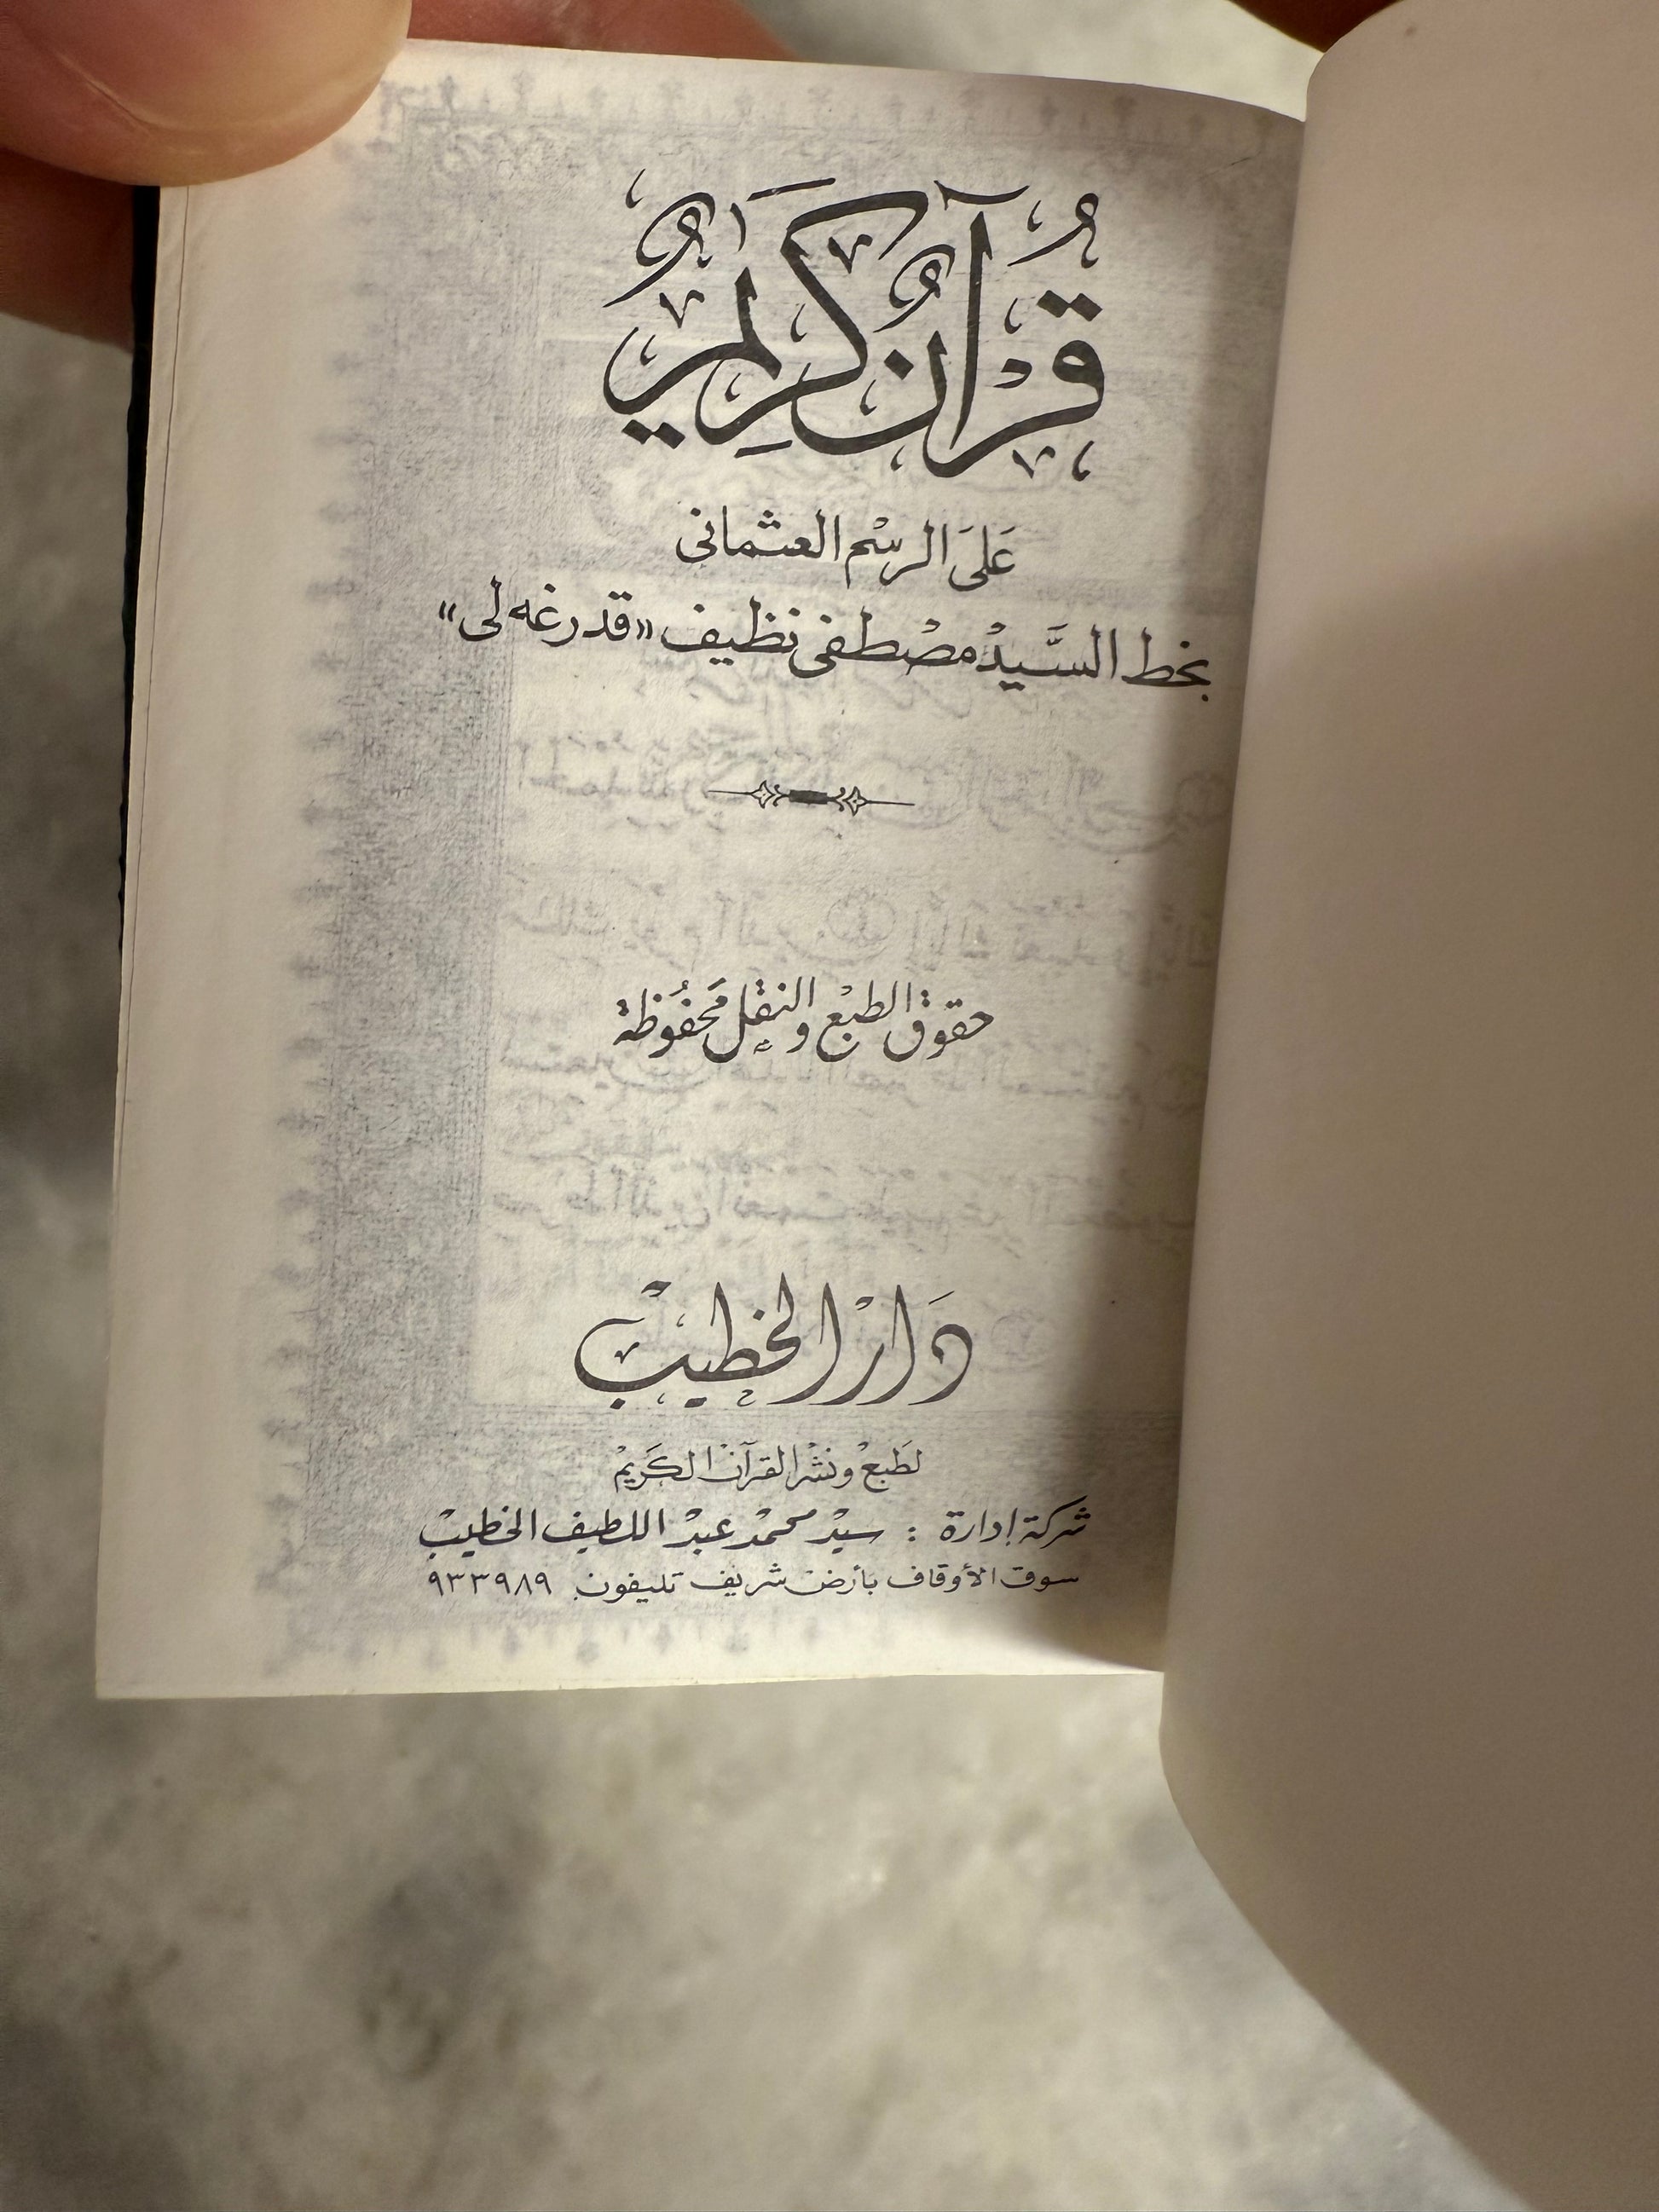 قُرْآنٌ كَرِيمٌ
عَلَى الرسْم العثمانى
بخط السَّيدْ مصْطفى نظيف «قدرغه لى»
حقوق الطبْع والنقْل مَحفُوظة
دَارْ الخطيبْ
لطَبعْ ونشْر القرآنْ الكَريمْ
شركة إدارة : سيدْ محمدْ عبدْ اللطيف الخطيبْ
سوق الأوقاف بأرض شريف تليفون ٩٣٣٩٨٩